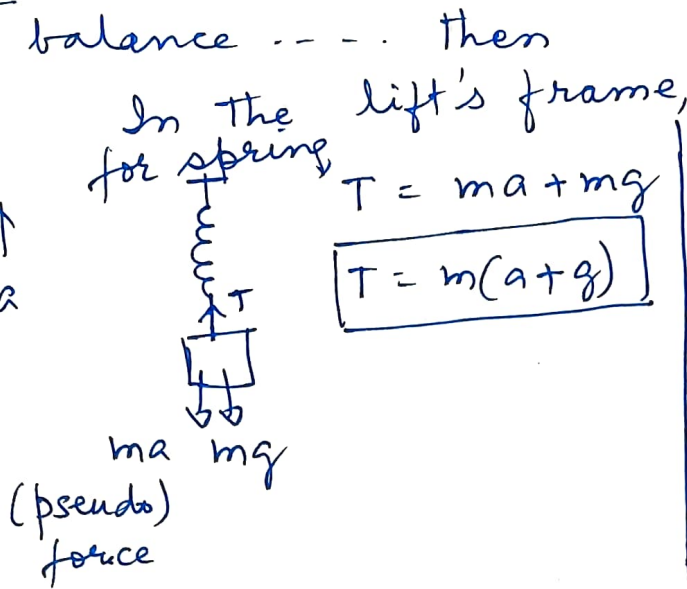 balance ---. then
In the lift's frame,
for spring,
T = ma + mg
T = m(a+g)
a
T
ma mg
(pseudo)
force